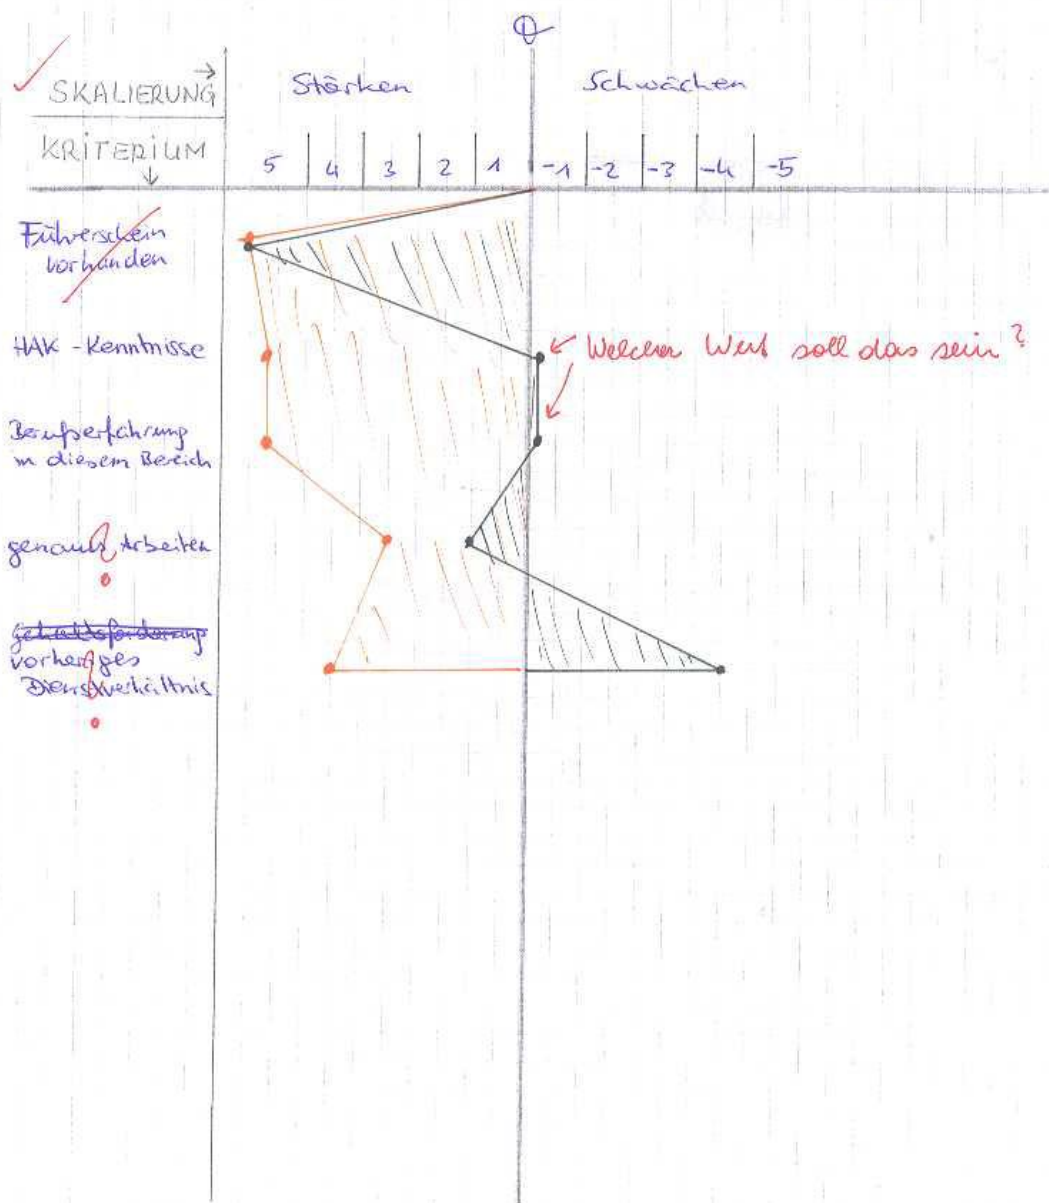 Ø
SKALIERUNG →
Stärken
Schwächen
KRITERIUM ↓
5 4 3 2 1 -1 -2 -3 -4 -5
Führerschein
vorhanden
HAK - Kenntnisse
Welcher Wert soll das sein?
Berufserfahrung
in diesem Bereich
genaus Arbeiten
Gehaltsforderung
vorheriges
Dienstverhältnis